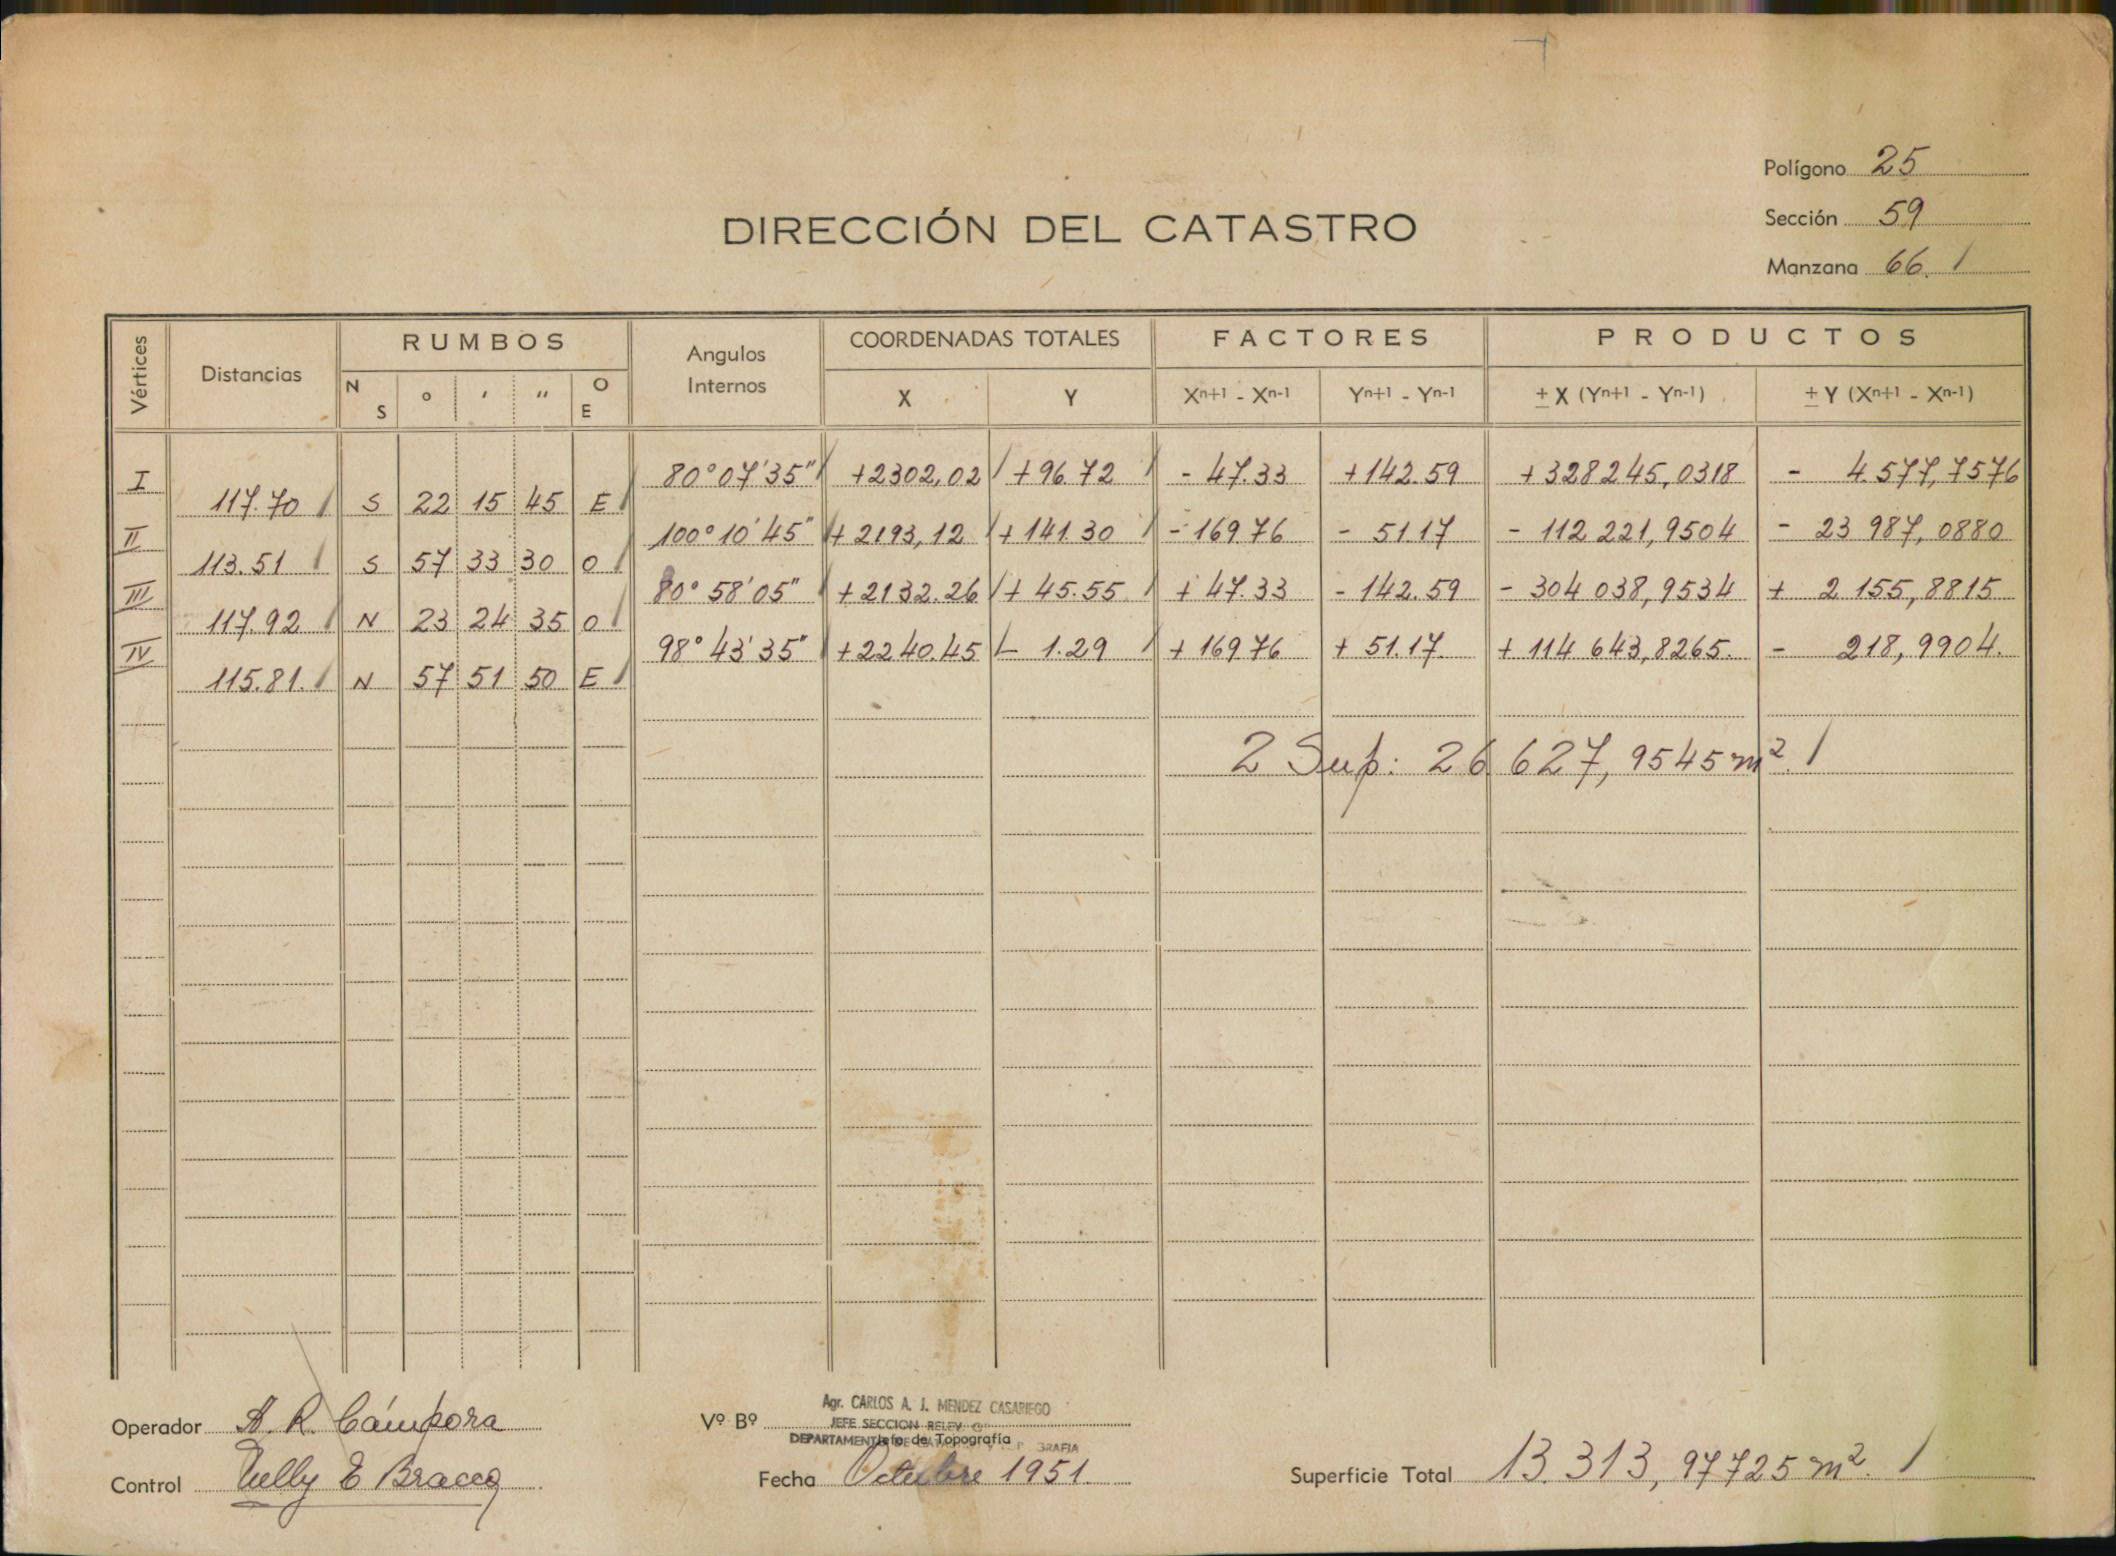 Polígono 25
Sección 59
DIRECCIÓN DEL CATASTRO
Manzana 66. /
Vértices Distancias RUMBOS Angulos Internos COORDENADAS TOTALES FACTORES PRODUCTOS
N S ° ' " O E X Y Xn+1 - Xn-1 Yn+1 - Yn-1 ± X (Yn+1 - Yn-1) ± Y (Xn+1 - Xn-1)
I 80°07'35" +2302,02 +96.72 - 47.33 +142.59 +328245,0318 - 4.577,7576
117.70 S 22 15 45 E
II 100°10'45" +2193,12 +141.30 - 169.76 - 51.17 - 112 221,9504 - 23 987,0880
113.51 S 57 33 30 O
III 80°58'05" +2132.26 + 45.55 + 47.33 - 142.59 - 304 038,9534 + 2 155,8815
117.92 N 23 24 35 O
IV 98°43'35" +2240.45 - 1.29 + 169.76 + 51.17 + 114 643,8265. - 218,9904.
115.81. N 57 51 50 E
2 Sup: 26 627,9545 m². /
Agr. CARLOS A. J. MENDEZ CASARIEGO
Operador A. R. Cámpora Vº Bº JEFE SECCION RELEV
DEPARTAMENT Jefe de Topografía
Control E Bracco Fecha Octubre 1951. Superficie Total 13.313,97725 m². /